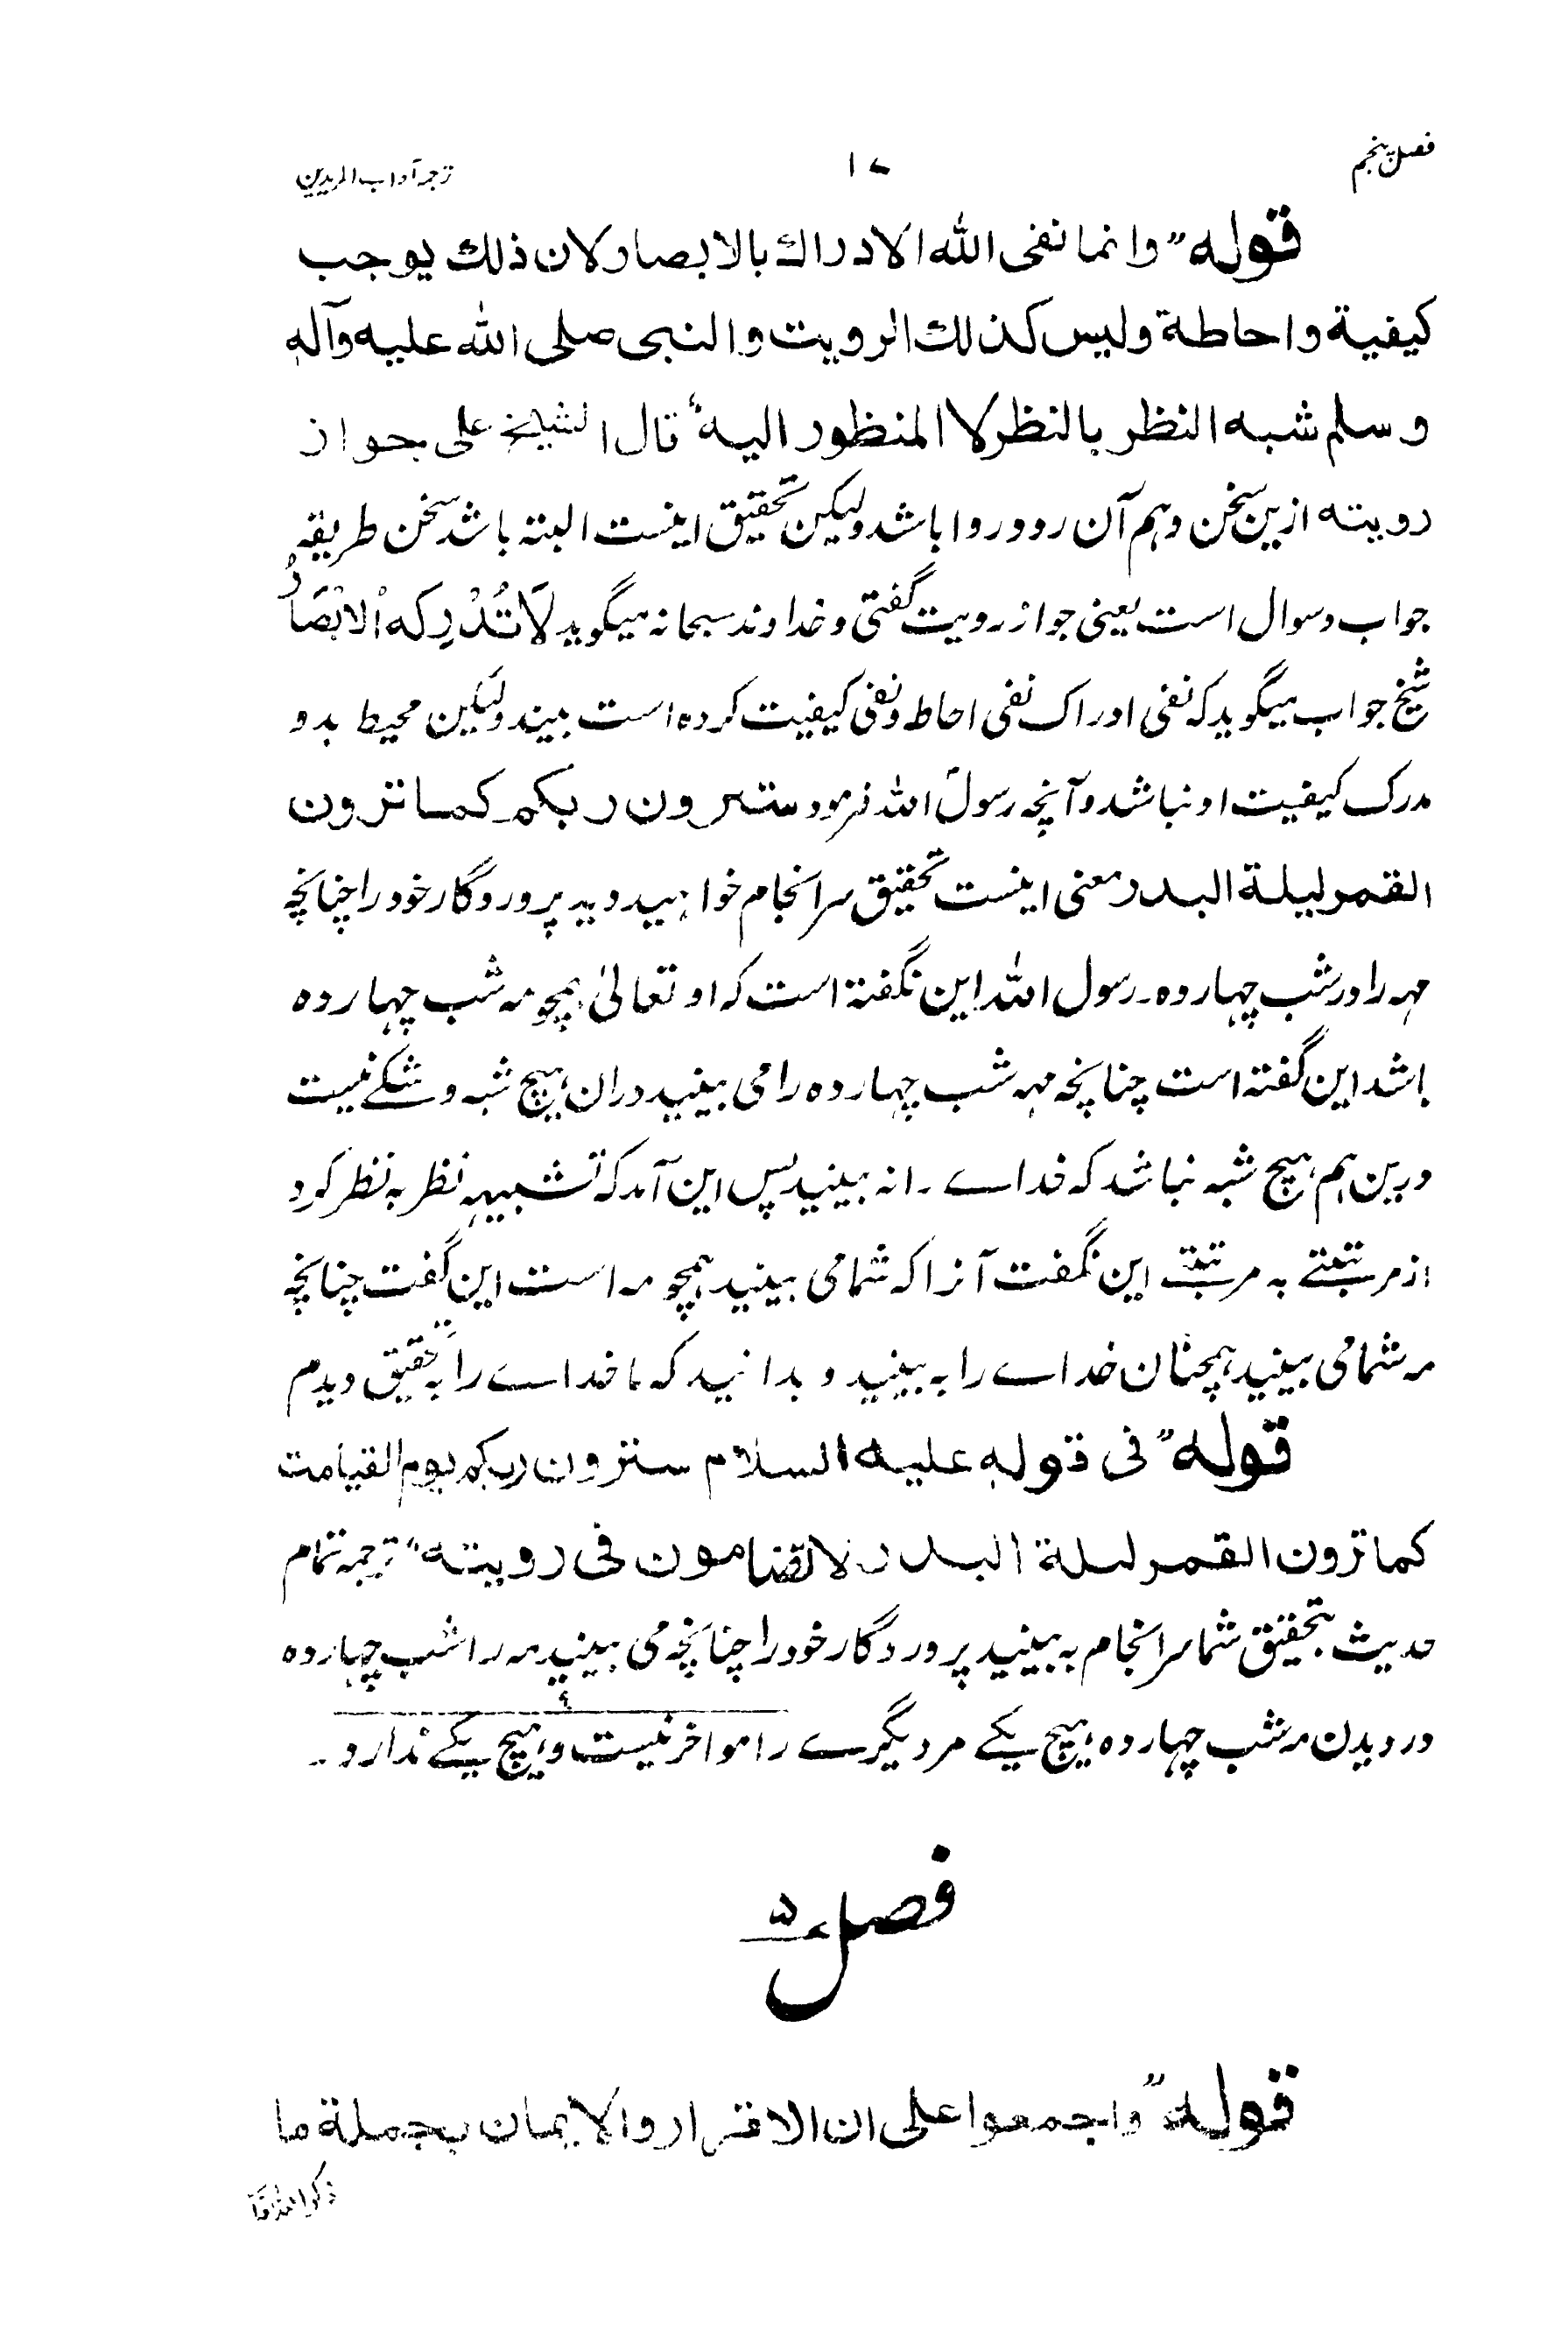 فصل پنجم
۱۷
ترجمه آداب المریدین
قوله ”وانما نفی الله الادراك بالابصار لان ذلك یوجب
کیفیة واحاطة ولیس کذلك الرویت والنبی صلی الله علیه وآله
وسلم شبه النظر بالنظر لا المنظور الیه“ قال الشیخ علی جواز
رویته ازین سخن وہم آن رود روا باشد ولیکن تحقیق اینست البتہ باشد سخن طریقہ
جواب وسوال است یعنی جواز رویت گفتی و خداوند سبحانہ میگوید لَا تُدْرِکه اْلابْصَارُ
شیخ جواب میگوید کہ نفی ادراک نفی احاطہ ونفی کیفیت کردہ است بیند ولیکن محیط بدو
مدرک کیفیت او نباشد وآنچہ رسول اللہ فرمود سترون ربکم کما ترون
القمر لیلة البدر معنی اینست تحقیق سرانجام خواہید دید پروردگار خود را چنانچہ
مہ را در شب چہاردہ۔ رسول اللہ این نگفتہ است کہ او تعالیٰ ہمچو مہ شب چہاردہ
باشد این گفتہ است چنانچہ مہ شب چہاردہ را می بینید دران ہیچ شبہ و شکے نیست
درین ہم ہیچ شبہ نباشد کہ خداے را نہ بینید پس این آمد کہ تشبیہہ نظر بہ نظر کرد
از مرتبتے بہ مرتبتے این نگفت آنرا کہ شما می بینید ہمچو مہ است این گفت چنانچہ
مہ شما می بینید ہمچنان خداے را بہ بینید و بدانید کہ ما خداے را بہ تحقیق دیدم
قوله ”فی قوله علیه السلام سترون ربکم یوم القیامت
کما ترون القمر لیلة البدر لا تضامون فی رویته“ ترجمہ تمام
حدیث بتحقیق شما سرانجام بہ بینید پروردگار خود را چنانچہ می بینید مہ را شب چہاردہ
در دیدن مہ شب چہاردہ ہیچ یکے مر دیگرے را مواخر نیست و ہیچ یکے ندارد۔
فصل ۵
قوله ”واجمعوا علی ان الاقرار والایمان بجملة ما